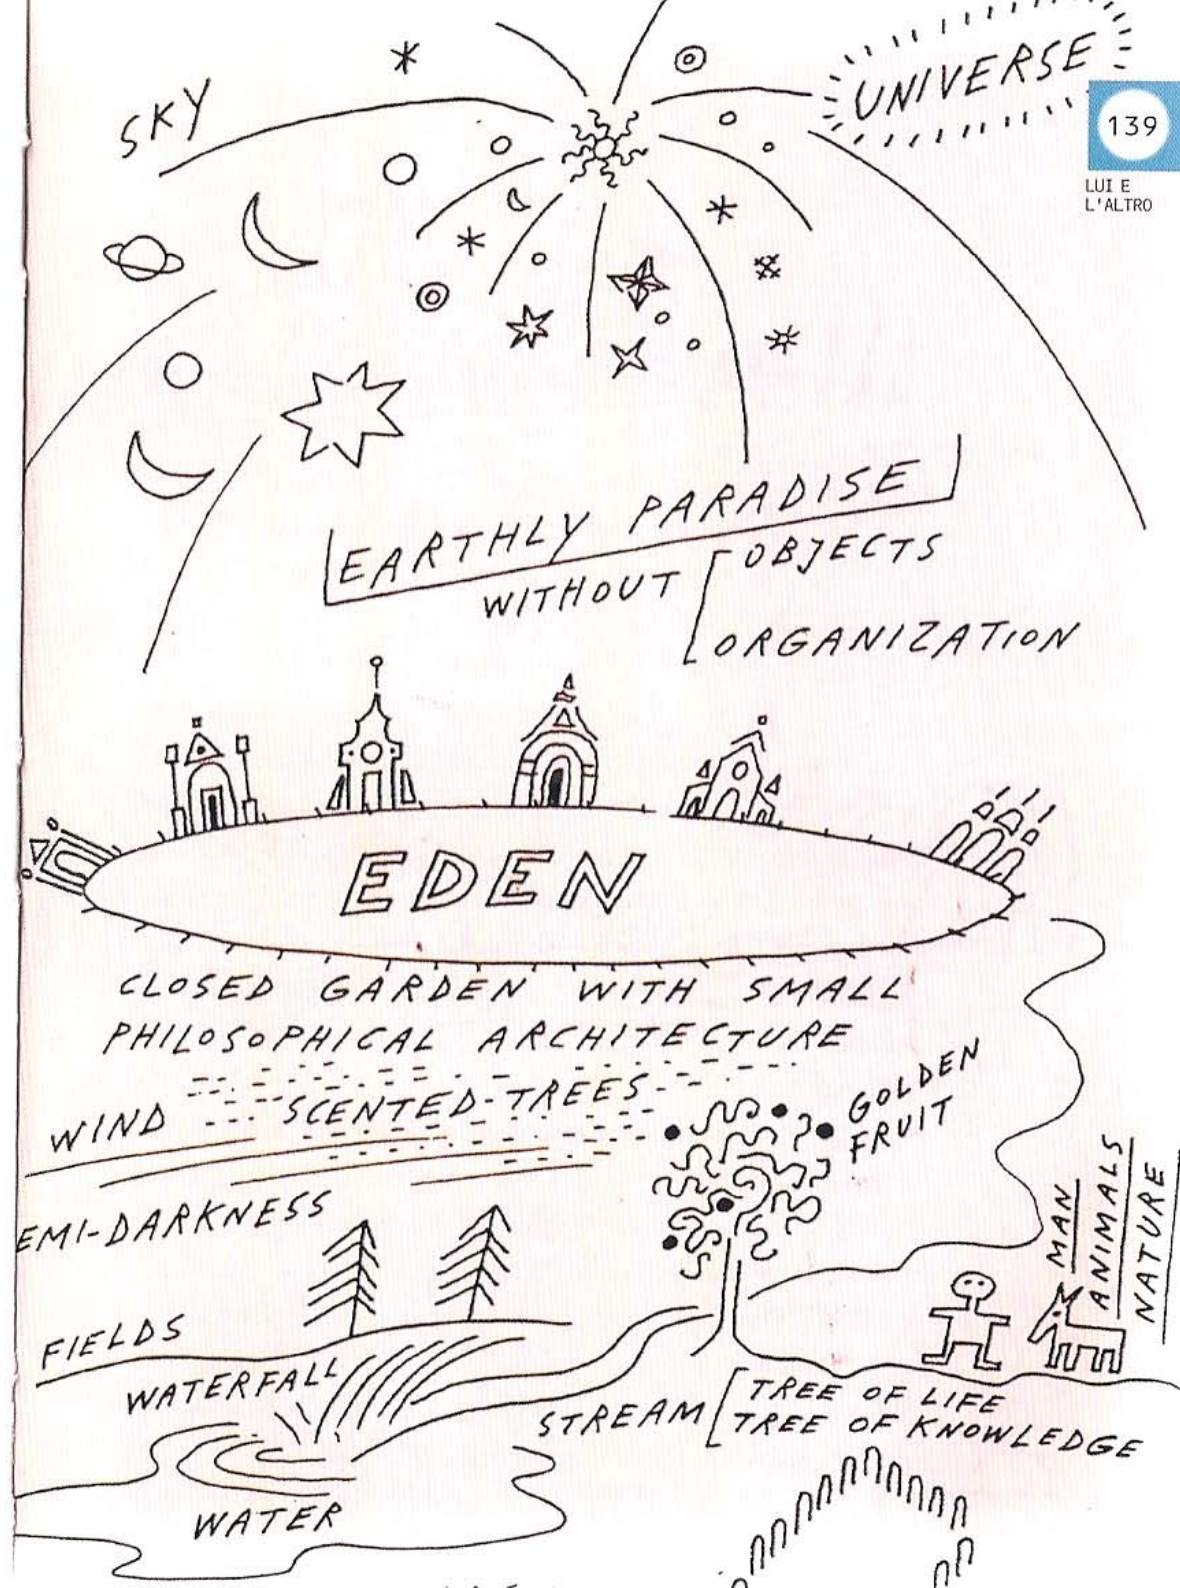 SKY
UNIVERSE
139
LUI E
L'ALTRO
EARTHLY PARADISE
WITHOUT
OBJECTS
ORGANIZATION
EDEN
CLOSED GARDEN WITH SMALL
PHILOSOPHICAL ARCHITECTURE
WIND
SCENTED-TREES
GOLDEN
FRUIT
EMI-DARKNESS
MAN
ANIMALS
NATURE
FIELDS
WATERFALL
STREAM
TREE OF LIFE
TREE OF KNOWLEDGE
WATER